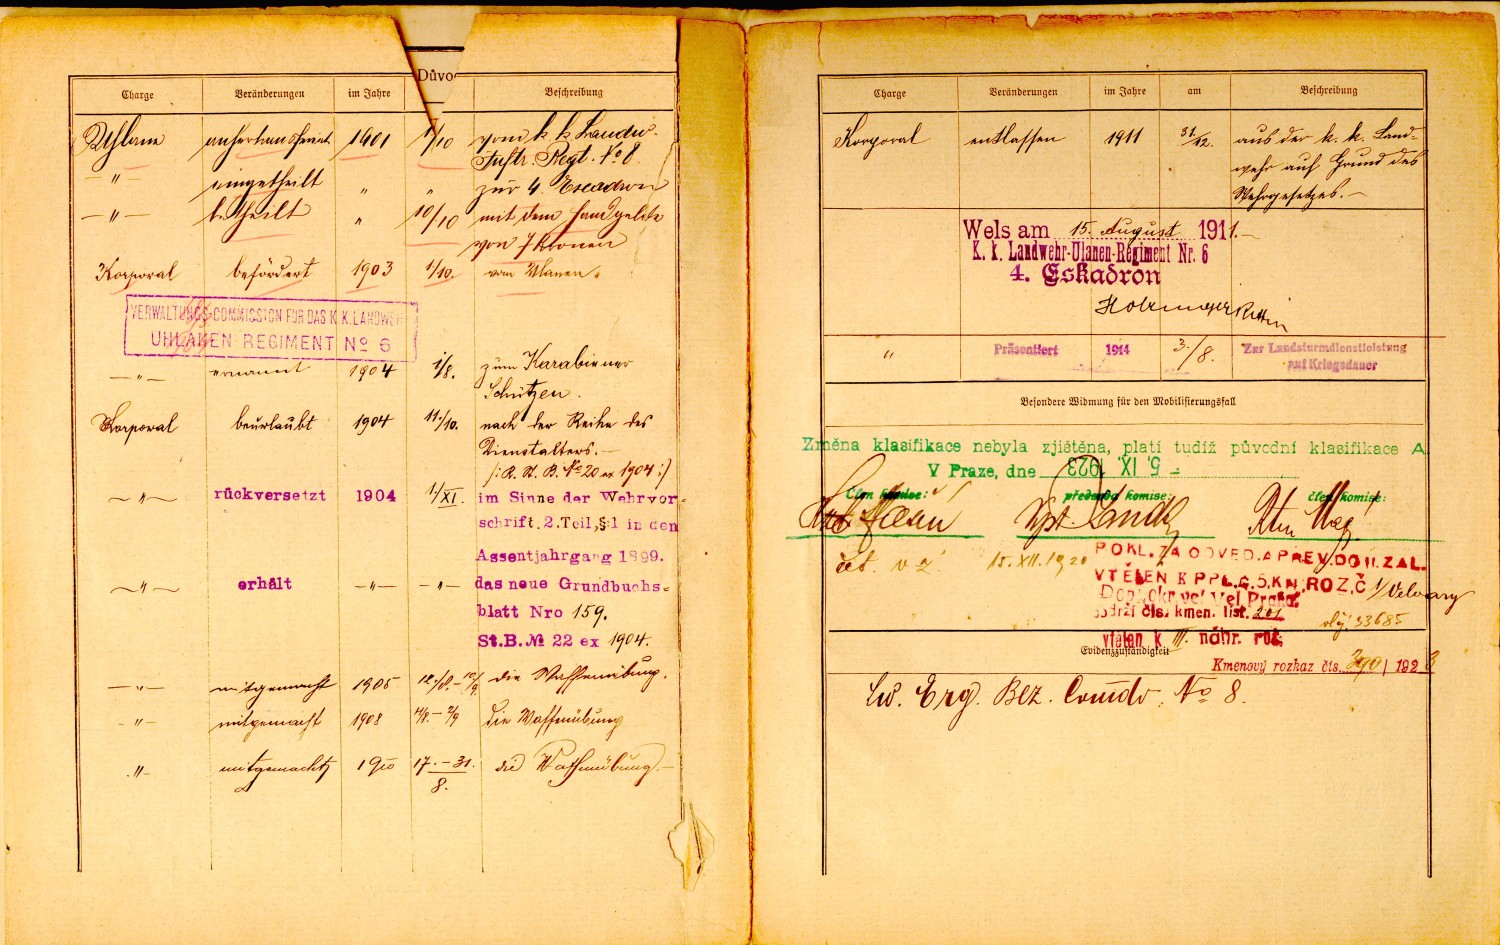 Důvo
Charge Veränderungen im Jahre Beschreibung
Uhlane 1901 1/10 vom k k Landw.
Regt. No 8.
-"- eingetheilt " " zur 4. Escadron
-"- betheilt " 10/10 mit dem Handgelde
von 7 Kronen
Korporal befördert 1903 1/10. vom Ulanen.
VERWALTUNGS-COMMISSION FÜR DAS K.K. LANDWEHR
UHLANEN REGIMENT No 6
-"- ernannt 1904 1/8. zum Karabiner
Schützen.
Korporal beurlaubt 1904 11./10. nach der Reihe des
Dienstalters.-
/: R. St. B. No 20 ex 1904 :/
-"- rückversetzt 1904 1/XI. im Sinne der Wehrvor-
schrift.2.Teil,§1 in den
Assentjahrgang 1899.
-"- erhält -"- -"- das neue Grundbuchs-
blatt Nro 159.
St.B.№ 22 ex 1904.
-"- mitgemacht 1905 die Waffenübung.
-"- mitgemacht 1908 4/8.- 2/9 die Waffenübung
-"- mitgemacht 1910 17.-31. die Waffenübung.-
8.
Charge Veränderungen im Jahre am Beschreibung
Korporal entlassen 1911 31/12. aus der k. k. Land-
wehr auf Grund des
Wehrgesetzes.-
Wels am 15. August 1911.-
K. k. Landwehr-Ulanen-Regiment Nr. 6
4. Eskadron
Holzmayer Rittm
" Präsentiert 1914 3./8. Zur Landsturmdienstleistung
auf Kriegsdauer
Besondere Widmung für den Mobilisierungsfall
Změna klasifikace nebyla zjištěna, platí tudíž původní klasifikace A
V Praze, dne - 5. IX. 1923
Člen komise: předseda komise: člen komise:
15. XII. 1920
POKL. ZA ODVED. A PŘEV. DO II. ZÁL.
VTĚLEN K PPL. Č. 5. KN. ROZ. Č. 1/Velvary
Vel Praha
čís. kmen. list. 201
33685
vtělen k III. náhr. roč.
Evidenzzuständigkeit
Kmenový rozkaz čís. 390 / 1923
Lw. Erg. Bez. Comdo. No 8.